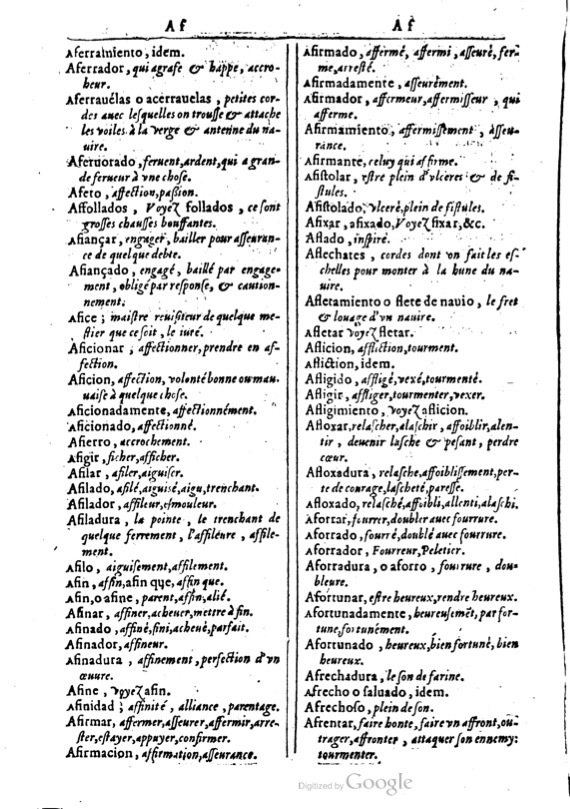 Af
Aferramiento, idem.
Aferrador, qui agrafe & happe, accro-
heur.
Aferrauelas o acerrauelas, petites cor-
des auec lesquelles on trousse & attache
les voiles à la verge & antenne du na-
uire.
Aferuorado, feruent, ardent, qui a gran-
de ferueur à vne chose.
Afeto, affection, passion.
Affollados, Voyez follados, ce sont
grosses chausses bouffantes.
Afiançar, engager, bailler pour asseuran-
ce de quelque debte.
Afiançado, engagé, baillé par engage-
ment, obligé par response, & caution-
nement.
Afice; maistre reuisiteur de quelque me-
stier que ce soit, le iuré.
Aficionar; affectionner, prendre en af-
fection.
Aficion, affection, volonté bonne ou mau-
uaise à quelque chose.
Aficionadamente, affectionnément.
Aficionado, affectionné.
Afierro, accrochement.
Afigir, ficher, afficher.
Afilar, afiler, aiguiser.
Afilado, afilé, aiguisé, aigu, trenchant.
Afilador, affileur, esmouleur.
Afiladura, la pointe, le trenchant de
quelque ferrement, l'affileure, affile-
ment.
Afilo, aiguisement, affilement.
Afin, affin, afin que, affin que.
Afin, o afine, parent, affin, alié.
Afinar, affiner, acheuer, mettre à fin.
Afinado, affiné, fini, acheué, parfait.
Afinador, affineur.
Afinadura, affinement, perfection d'vn
œuure.
Afine, voyez afin.
Afinidad; affinité, alliance, parentage.
Afirmar, affermer, asseurer, affermir, arre-
ster, estayer, appuyer, confirmer.
Afirmacion, affirmation, asseurance.
Af
Afirmado, affermé, affermi, asseuré, fer-
me, arresté.
Afirmadamente, asseurément.
Afirmador, affermeur, affermisseur, qui
afferme.
Afirmamiento, affermissement, asseu-
rance.
Afirmante, celuy qui afirme.
Afistolar, estre plein d'vlceres & de fi-
stules.
Afistolado, vlceré, plein de fistules.
Afixar, afixado, Voyez fixar, &c.
Aflado, inspiré.
Aflechates, cordes dont on fait les es-
chelles pour monter à la hune du na-
uire.
Afletamiento o flete de nauio, le fret
& louage d'vn nauire.
Afletar voyez fletar.
Aflicion, affliction, tourment.
Afliction, idem.
Afligido, affligé, vexé, tourmenté.
Afligir, affliger, tourmenter, vexer.
Afligimiento, voyez aflicion.
Afloxar, relascher, alaschir, affoiblir, alen-
tir, deuenir lasche & pesant, perdre
cœur.
Afloxadura, relasche, affoiblissement, per-
te de courage, lascheté, paresse.
Afloxado, relasché, affoibli, allenti, alaschi.
Aforrar, fourrer, doubler auec fourrure.
Aforrado, fourré, doublé auec fourrure.
Aforrador, Fourreur, Peletier.
Aforradura, o aforro, fourrure, dou-
bleure.
Afortunar, estre heureux, rendre heureux.
Afortunadamente, heureusemēt, par for-
tune, fortunément.
Afortunado, heureux, bien fortuné, bien
heureux.
Afrechadura, le son de farine.
Afrecho o saluado, idem.
Afrechoso, plein de son.
Afrentar, faire honte, faire vn affront, ou-
trager, affronter, attaquer son ennemy:
tourmenter.
Digitized by Google